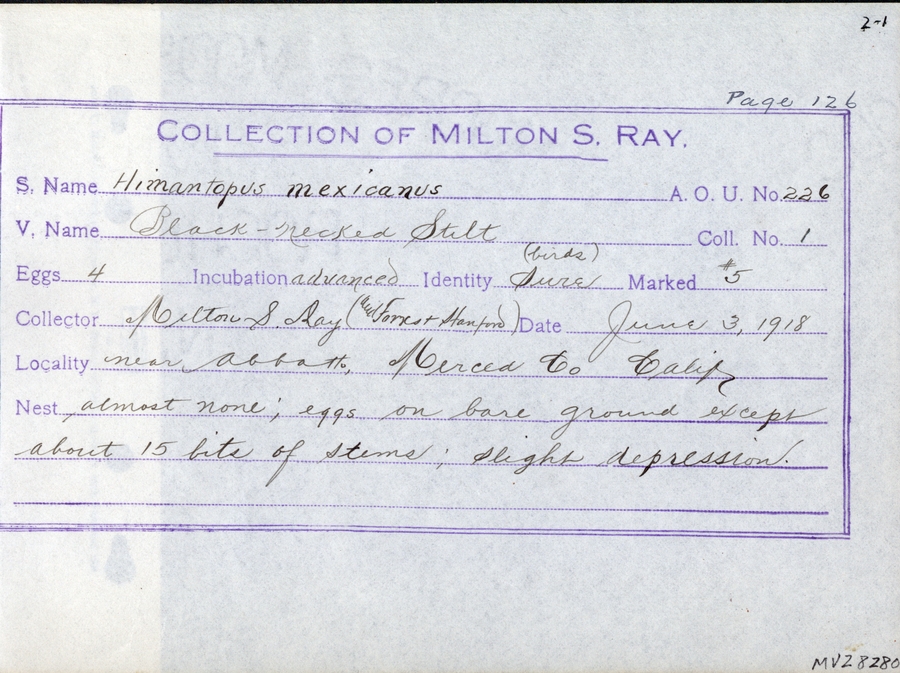 2-1
Page 126
COLLECTION OF MILTON S. RAY.
S. Name Himantopus mexicanus A. O. U. No. 226
V. Name Black-necked Stilt Coll. No. 1
(birds)
Eggs 4 Incubation advanced Identity Sure Marked #5
Collector Milton S. Ray ( Forrest Hanford) Date June 3, 1918
Locality near Abbott, Merced Co Calif
Nest almost none; eggs on bare ground except
about 15 bits of stems; slight depression.
MVZ 8280